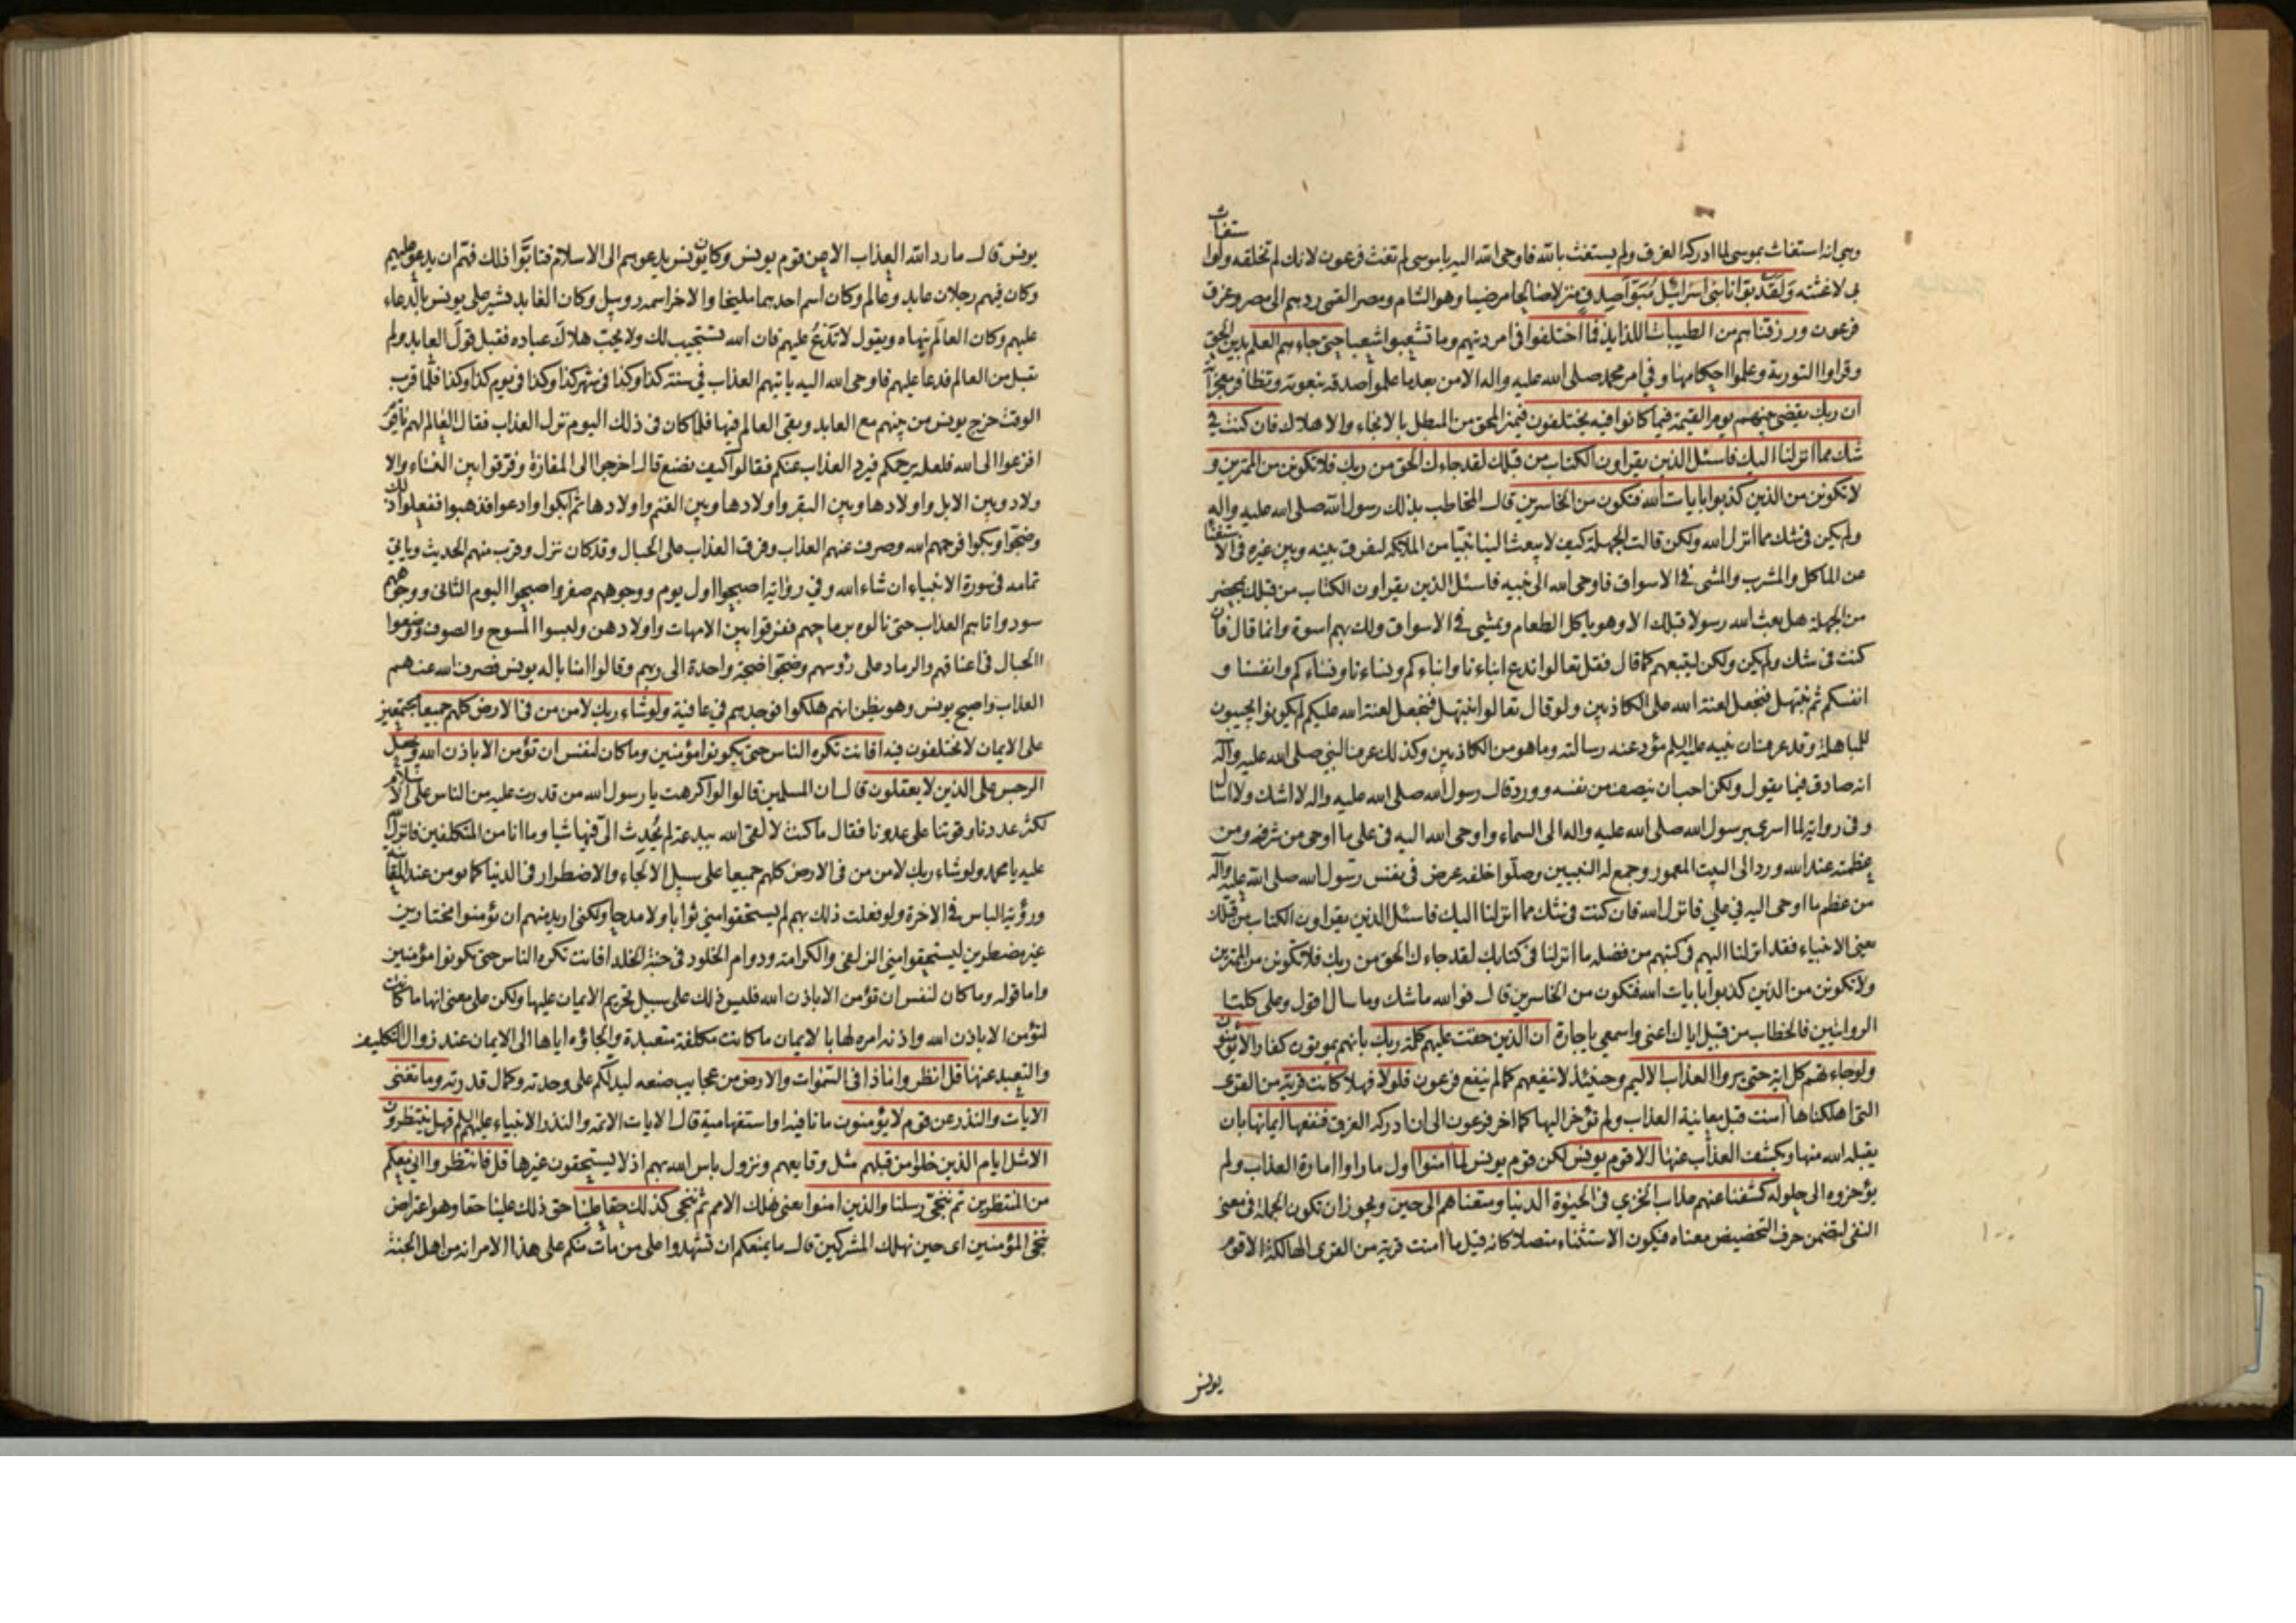 وهي انه استغاث بموسى لما ادركه الغرق ولم يستغث بالله فاوحى الله اليه يا موسى لم تغث فرعون لانك لم تخلقه ولو استغاث
بي لاغثته ولقد بوانا بني اسرائيل مبوا صدق منزلا صالحا مرضيا وهو الشام ومصر القمي ردهم الى مصر وغرق
فرعون ورزقناهم من الطيبات اللذايذ فما اختلفوا في امر دينهم وما تشعبوا شعبا حتى جاءهم العلم بدين الحق
وقراوا التورية وعلموا احكامها وفي امر محمد صلى الله عليه واله الا من بعد ما علموا صدقه بنعوته وتظافر معجزاته
ان ربك يقضي بينهم يوم القيمة فيما كانوا فيه يختلفون فيميز المحق من المبطل بالانجاء والاهلاك فان كنت في
شك مما انزلنا اليك فاسئل الذين يقراون الكتاب من قبلك لقد جاءك الحق من ربك فلا تكونن من الممترين و
لا تكونن من الذين كذبوا بايات الله فتكون من الخاسرين قال المخاطب بذلك رسول الله صلى الله عليه واله
ولم يكن في شك مما انزل الله ولكن قالت الجهلة كيف لا يبعث الينا نبيا من الملئكة ليفرق بينه وبين غيره في الاستغناء
عن الماكل والمشرب والمشي في الاسواق فاوحى الله الى نبيه فاسئل الذين يقراون الكتاب من قبلك بمحضر
من الجهلة هل بعث الله رسولا قبلك الا وهو ياكل الطعام ويمشي في الاسواق ولك بهم اسوة وانما قال فان
كنت في شك ولم يكن ولكن ليتبعهم كما قال فقل تعالوا ندع ابناءنا وابناءكم ونساءنا ونساءكم وانفسنا و
انفسكم ثم نبتهل فنجعل لعنة الله على الكاذبين ولو قال تعالوا نبتهل فنجعل لعنة الله عليكم لم يكونوا يجيبون
للمباهلة وقد عرف ان نبيه عليه السلم مؤد عنه رسالته وما هو من الكاذبين وكذلك عرف النبي صلى الله عليه واله
انه صادق فيما يقول ولكن احب ان ينصف من نفسه وورد قال رسول الله صلى الله عليه واله لا اشك ولا اسال
وفي رواية لما اسري برسول الله صلى الله عليه واله الى السماء واوحى الله اليه في علي ما اوحى من شرفه ومن
عظمته عند الله ورد الى البيت المعمور وجمع له النبيين وصلوا خلفه عرض في نفس رسول الله صلى الله عليه واله
من عظم ما اوحى اليه في علي فانزل الله فان كنت في شك مما انزلنا اليك فاسئل الذين يقراون الكتاب من قبلك
يعني الانبياء فقد انزلنا اليهم في كتبهم من فضله ما انزلنا في كتابك لقد جاءك الحق من ربك فلا تكونن من الممترين
ولا تكونن من الذين كذبوا بايات الله فتكون من الخاسرين قال فو الله ما شك وما سال اقول وعلى كلتا
الروايتين فالخطاب من قبيل اياك اعني واسمعي يا جارة ان الذين حقت عليهم كلمة ربك بانهم يموتون كفارا لا يؤمنون
ولو جاءتهم كل اية حتى يروا العذاب الاليم وحينئذ لا ينفعهم كما لم ينفع فرعون فلولا فهلا كانت قرية من القرى
التي اهلكناها امنت قبل معاينة العذاب ولم تؤخر اليها كما اخر فرعون الى ان ادركه الغرق فنفعها ايمانها بان
يقبله الله منها ويكشف العذاب عنها الا قوم يونس لكن قوم يونس لما امنوا اول ما راوا امارة العذاب ولم
يؤخروه الى حلوله كشفنا عنهم عذاب الخزي في الحيوة الدنيا ومتعناهم الى حين ويجوز ان تكون الجملة في معنى
النفي لتضمن حرف التحضيض معناه فيكون الاستثناء متصلا كانه قيل ما امنت قرية من القرى الهالكة الا قوم
يونس
يونس قال ما رد الله العذاب الا عن قوم يونس وكان يونس يدعوهم الى الاسلام فتابوا ذلك فهم ان يدعو عليهم
وكان فيهم رجلان عابد وعالم وكان اسم احدهما مليخا والاخر اسمه روبيل وكان العابد يشير على يونس بالدعاء
عليهم وكان العالم ينهاه ويقول لا تدع عليهم فان الله يستجيب لك ولا يحب هلاك عباده فقبل قول العابد ولم
يقبل من العالم فدعا عليهم فاوحى الله اليه ياتيهم العذاب في سنة كذا وكذا في شهر كذا وكذا في يوم كذا وكذا فلما قرب
الوقت خرج يونس من بينهم مع العابد وبقي العالم فيها فلما كان في ذلك اليوم نزل العذاب فقال العالم لهم يا قوم
افزعوا الى الله فلعله يرحمكم فيرد العذاب عنكم فقالوا كيف نصنع قال اخرجوا الى المفازة وفرقوا بين النساء والا
ولاد وبين الابل واولادها وبين البقر واولادها وبين الغنم واولادها ثم ابكوا وادعوا فذهبوا ففعلوا ذلك
وضجوا وبكوا فرحمهم الله وصرف عنهم العذاب وفرق العذاب على الجبال وقد كان نزل وقرب منهم الحديث وياتي
تمامه في سورة الانبياء ان شاء الله وفي رواية اصبحوا اول يوم ووجوههم صفر واصبحوا اليوم الثاني ووجوههم
سود واتاهم العذاب حتى نالوه برماحهم ففرقوا بين الامهات واولادهن ولبسوا المسوح والصوف ووضعوا
الحبال في اعناقهم والرماد على رؤسهم وضجوا ضجة واحدة الى ربهم وقالوا امنا باله يونس فصرف الله عنهم
العذاب واصبح يونس وهو يظن انهم هلكوا فوجدهم في عافية ولو شاء ربك لامن من في الارض كلهم جميعا مجتمعين
على الايمان لا يختلفون فيه افانت تكره الناس حتى يكونوا مؤمنين وما كان لنفس ان تؤمن الا باذن الله ويجعل
الرجس على الذين لا يعقلون قال ان المسلمين قالوا لو اكرهت يا رسول الله من قدرت عليه من الناس على الاسلام
لكثر عددنا وقوتنا على عدونا فقال ما كنت لالقى الله ببدعة لم يحدث الي فيها شيا وما انا من المتكلفين فانزل الله
عليه يا محمد ولو شاء ربك لامن من في الارض كلهم جميعا على سبيل الالجاء والاضطرار في الدنيا كما يومن عند المعاينة
ورؤية الباس في الاخرة ولو فعلت ذلك بهم لم يستحقوا مني ثوابا ولا مدحا ولكني اريد منهم ان يؤمنوا مختارين
غير مضطرين ليستحقوا مني الزلفى والكرامة ودوام الخلود في جنة الخلد افانت تكره الناس حتى يكونوا مؤمنين
واما قوله وما كان لنفس ان تؤمن الا باذن الله فليس ذلك على سبيل تحريم الايمان عليها ولكن على معنى انها ما كانت
لتؤمن الا باذن الله واذنه امره لها بالايمان ما كانت مكلفة متعبدة والجاؤه اياها الى الايمان عند زوال التكليف
والتعبد عنها قل انظروا ماذا في السموات والارض من عجايب صنعه ليدلكم على وحدته وكمال قدرته وما تغني
الايات والنذر عن قوم لا يؤمنون ما نافية او استفهامية قال الايات الائمة والنذر الانبياء عليهم السلم فهل ينتظرون
الا مثل ايام الذين خلوا من قبلهم مثل وقايعهم ونزول باس الله بهم اذ لا يستحقون غيرها قل فانتظروا اني معكم
من المنتظرين ثم ننجي رسلنا والذين امنوا يعني نهلك الامم ثم ننجي كذلك حقا علينا حق ذلك علينا حقا وهو اعتراض
ننجي المؤمنين اى حين نهلك المشركين قال ما يمنعكم ان تشهدوا على من مات منكم على هذا الامر انه من اهل الجنة